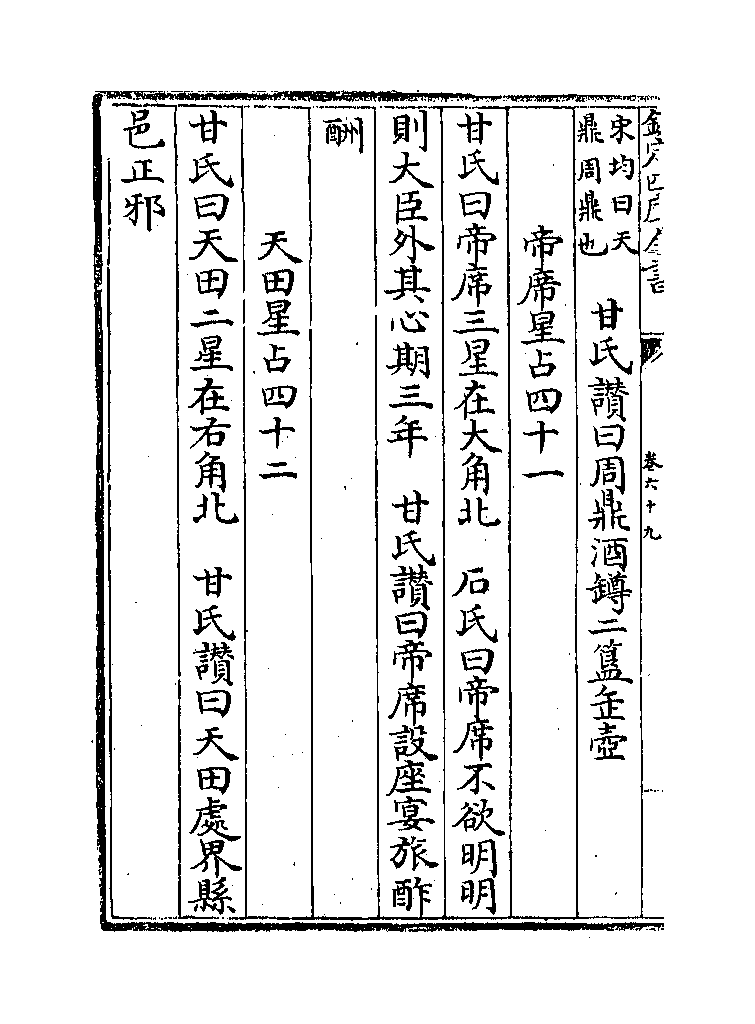 欽定四庫全書
卷六十九
宋均曰天
鼎周鼎也
甘氏讃曰周鼎酒罇二簋缶壺
帝席星占四十一
甘氏曰帝席三星在大角北　石氏曰帝席不欲明明
則大臣外其心期三年　甘氏讃曰帝席設座宴旅酢
酬
天田星占四十二
甘氏曰天田二星在右角北　甘氏讃曰天田處界縣
邑正邪